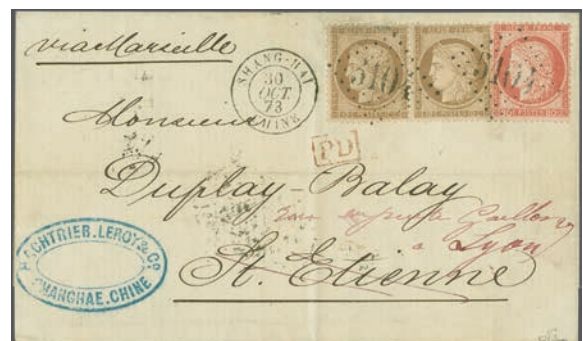 via Marseille
SHANG-HAI
30
OCT.
73
CHINE
5104
5104
REPUB. FRANC.
REPUB. FRANC.
Monsieur
PD
Duplay-Balay
à Lyon
St. Etienne
HECHTRIER. LEROY & CO
SHANGHAE. CHINE